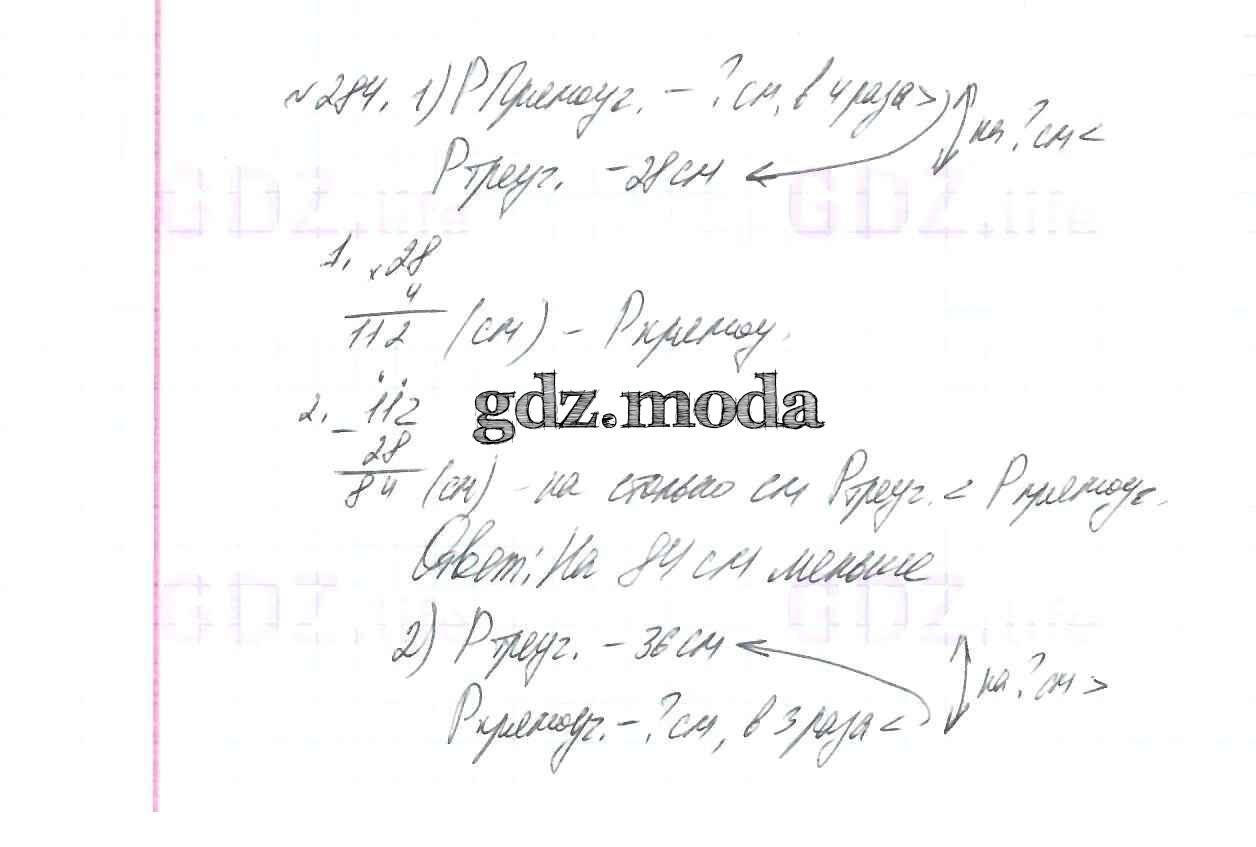 №284. 1) P Прямоуг. – ? см, в 4 раза > на ? см <
Pтреуг. – 28 см
1. × 28
4
112 (см) – Pпрямоу.
2. – 112
28
84 (см) – на столько см Pтреуг. < Pпрямоуг.
gdz.moda
Ответ: На 84 см меньше
2) Pтреуг. – 36 см
на ? см >
Pпрямоуг. – ? см, в 3 раза <
GDZ.life
GDZ.life
GDZ.life
GDZ.life